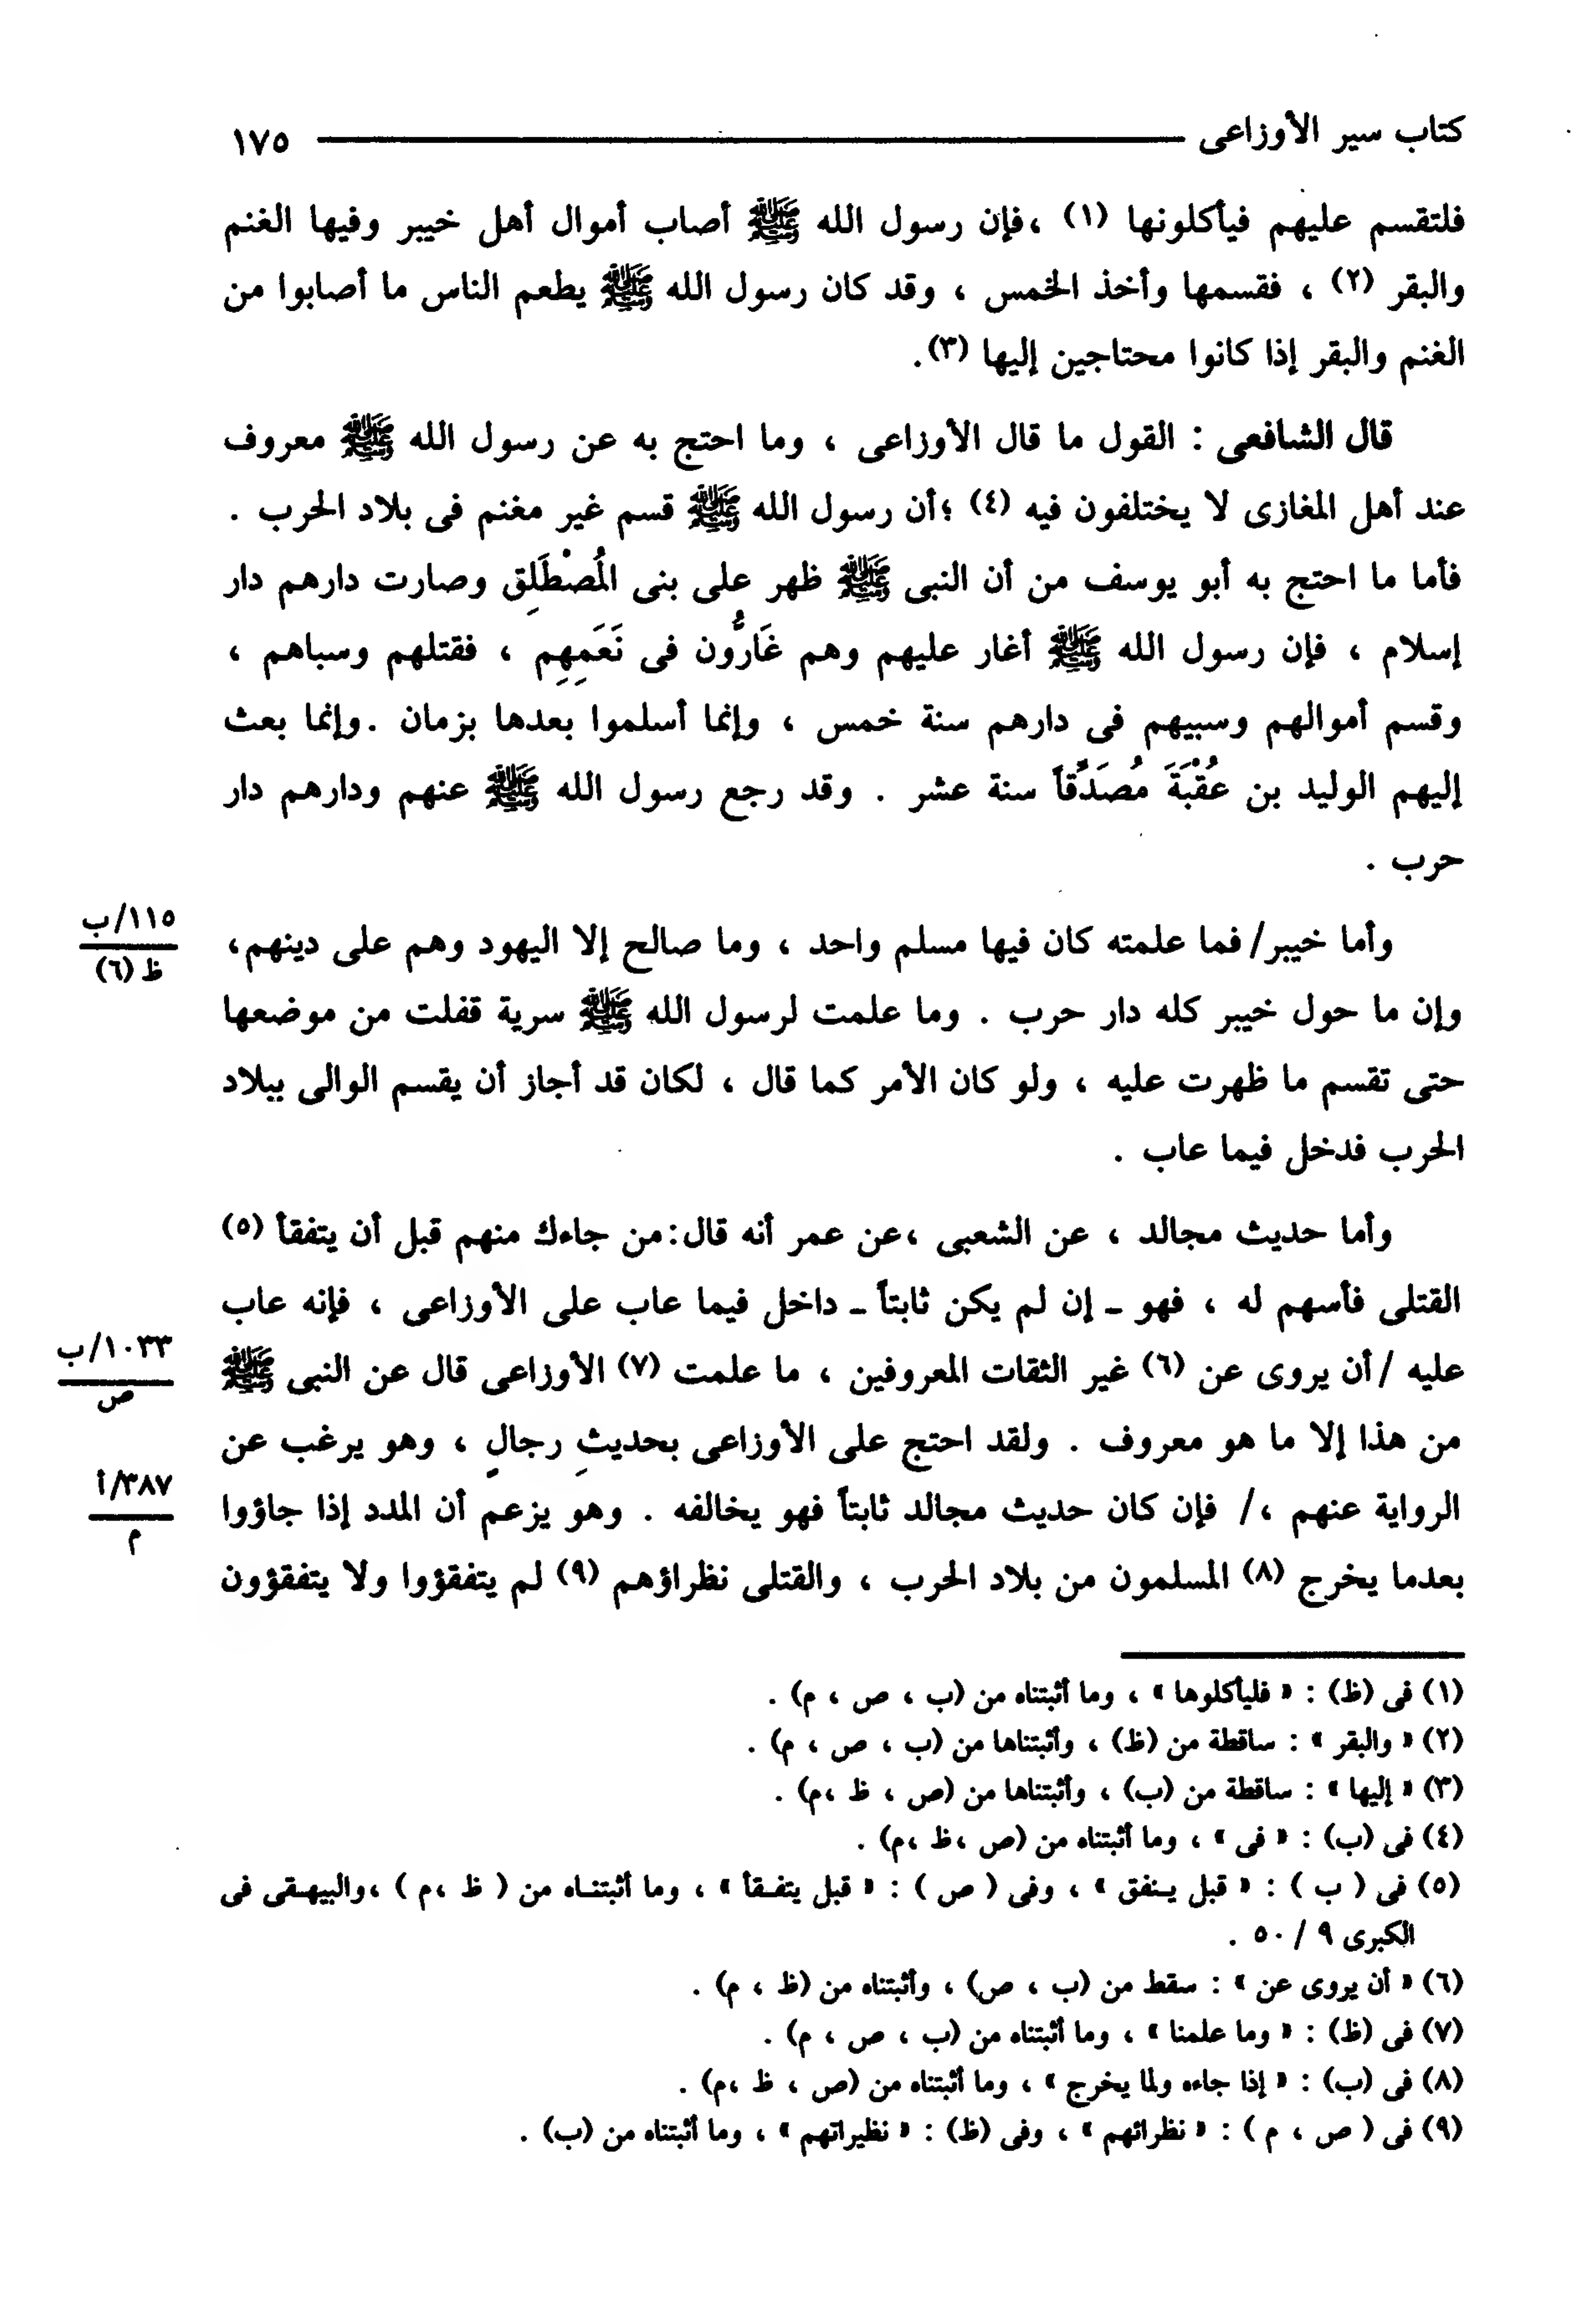 كتاب سير الأوزاعى ١٧٥
فلتقسم عليهم فيأكلونها (١) ،فإن رسول الله ﷺ أصاب أموال أهل خيبر وفيها الغنم
والبقر (٢) ، فقسمها وأخذ الخمس ، وقد كان رسول الله ﷺ يطعم الناس ما أصابوا من
الغنم والبقر إذا كانوا محتاجين إليها (٣).
قال الشافعى : القول ما قال الأوزاعى ، وما احتج به عن رسول الله ﷺ معروف
عند أهل المغازى لا يختلفون فيه (٤) ؛أن رسول الله ﷺ قسم غير مغنم فى بلاد الحرب .
فأما ما احتج به أبو يوسف من أن النبى ﷺ ظهر على بنى المُصْطَلِق وصارت دارهم دار
إسلام ، فإن رسول الله ﷺ أغار عليهم وهم غَارُّون فى نَعَمِهِم ، فقتلهم وسباهم ،
وقسم أموالهم وسبيهم فى دارهم سنة خمس ، وإنما أسلموا بعدها بزمان .وإنما بعث
إليهم الوليد بن عُقْبَةَ مُصَدِّقاً سنة عشر . وقد رجع رسول الله ﷺ عنهم ودارهم دار
حرب .
١١٥/ب
ظ (٦)
وأما خيبر/ فما علمته كان فيها مسلم واحد ، وما صالح إلا اليهود وهم على دينهم،
وإن ما حول خيبر كله دار حرب . وما علمت لرسول الله ﷺ سرية قفلت من موضعها
حتى تقسم ما ظهرت عليه ، ولو كان الأمر كما قال ، لكان قد أجاز أن يقسم الوالى ببلاد
الحرب فدخل فيما عاب .
وأما حديث مجالد ، عن الشعبى ،عن عمر أنه قال:من جاءك منهم قبل أن يتفقأ (٥)
القتلى فأسهم له ، فهو ـ إن لم يكن ثابتاً ـ داخل فيما عاب على الأوزاعى ، فإنه عاب
١٠٣٣/ب
ص
عليه / أن يروى عن (٦) غير الثقات المعروفين ، ما علمت (٧) الأوزاعى قال عن النبى ﷺ
من هذا إلا ما هو معروف . ولقد احتج على الأوزاعى بحديثِ رجالٍ ، وهو يرغب عن
٣٨٧/أ
م
الرواية عنهم ،/ فإن كان حديث مجالد ثابتاً فهو يخالفه . وهو يزعم أن المدد إذا جاؤوا
بعدما يخرج (٨) المسلمون من بلاد الحرب ، والقتلى نظراؤهم (٩) لم يتفقؤوا ولا يتفقؤون
(١) فى (ظ) : « فليأكلوها » ، وما أثبتناه من (ب ، ص ، م) .
(٢) « والبقر » : ساقطة من (ظ) ، وأثبتناها من (ب ، ص ، م) .
(٣) « إليها » : ساقطة من (ب) ، وأثبتناها من (ص ، ظ ،م) .
(٤) فى (ب) : « فى » ، وما أثبتناه من (ص ،ظ ،م) .
(٥) فى ( ب ) : « قبل يـنفق » ، وفى ( ص ) : « قبل يتفـقأ » ، وما أثبتنـاه من ( ظ ،م ) ،والبيهـقى فى
الكبرى ٩ / ٥٠ .
(٦) « أن يروى عن » : سقط من (ب ، ص) ، وأثبتناه من (ظ ، م) .
(٧) فى (ظ) : « وما علمنا » ، وما أثبتناه من (ب ، ص ، م) .
(٨) فى (ب) : « إذا جاءه ولما يخرج » ، وما أثبتناه من (ص ، ظ ،م) .
(٩) فى ( ص ، م ) : « نظرائهم » ، وفى (ظ) : « نظيراتهم » ، وما أثبتناه من (ب) .